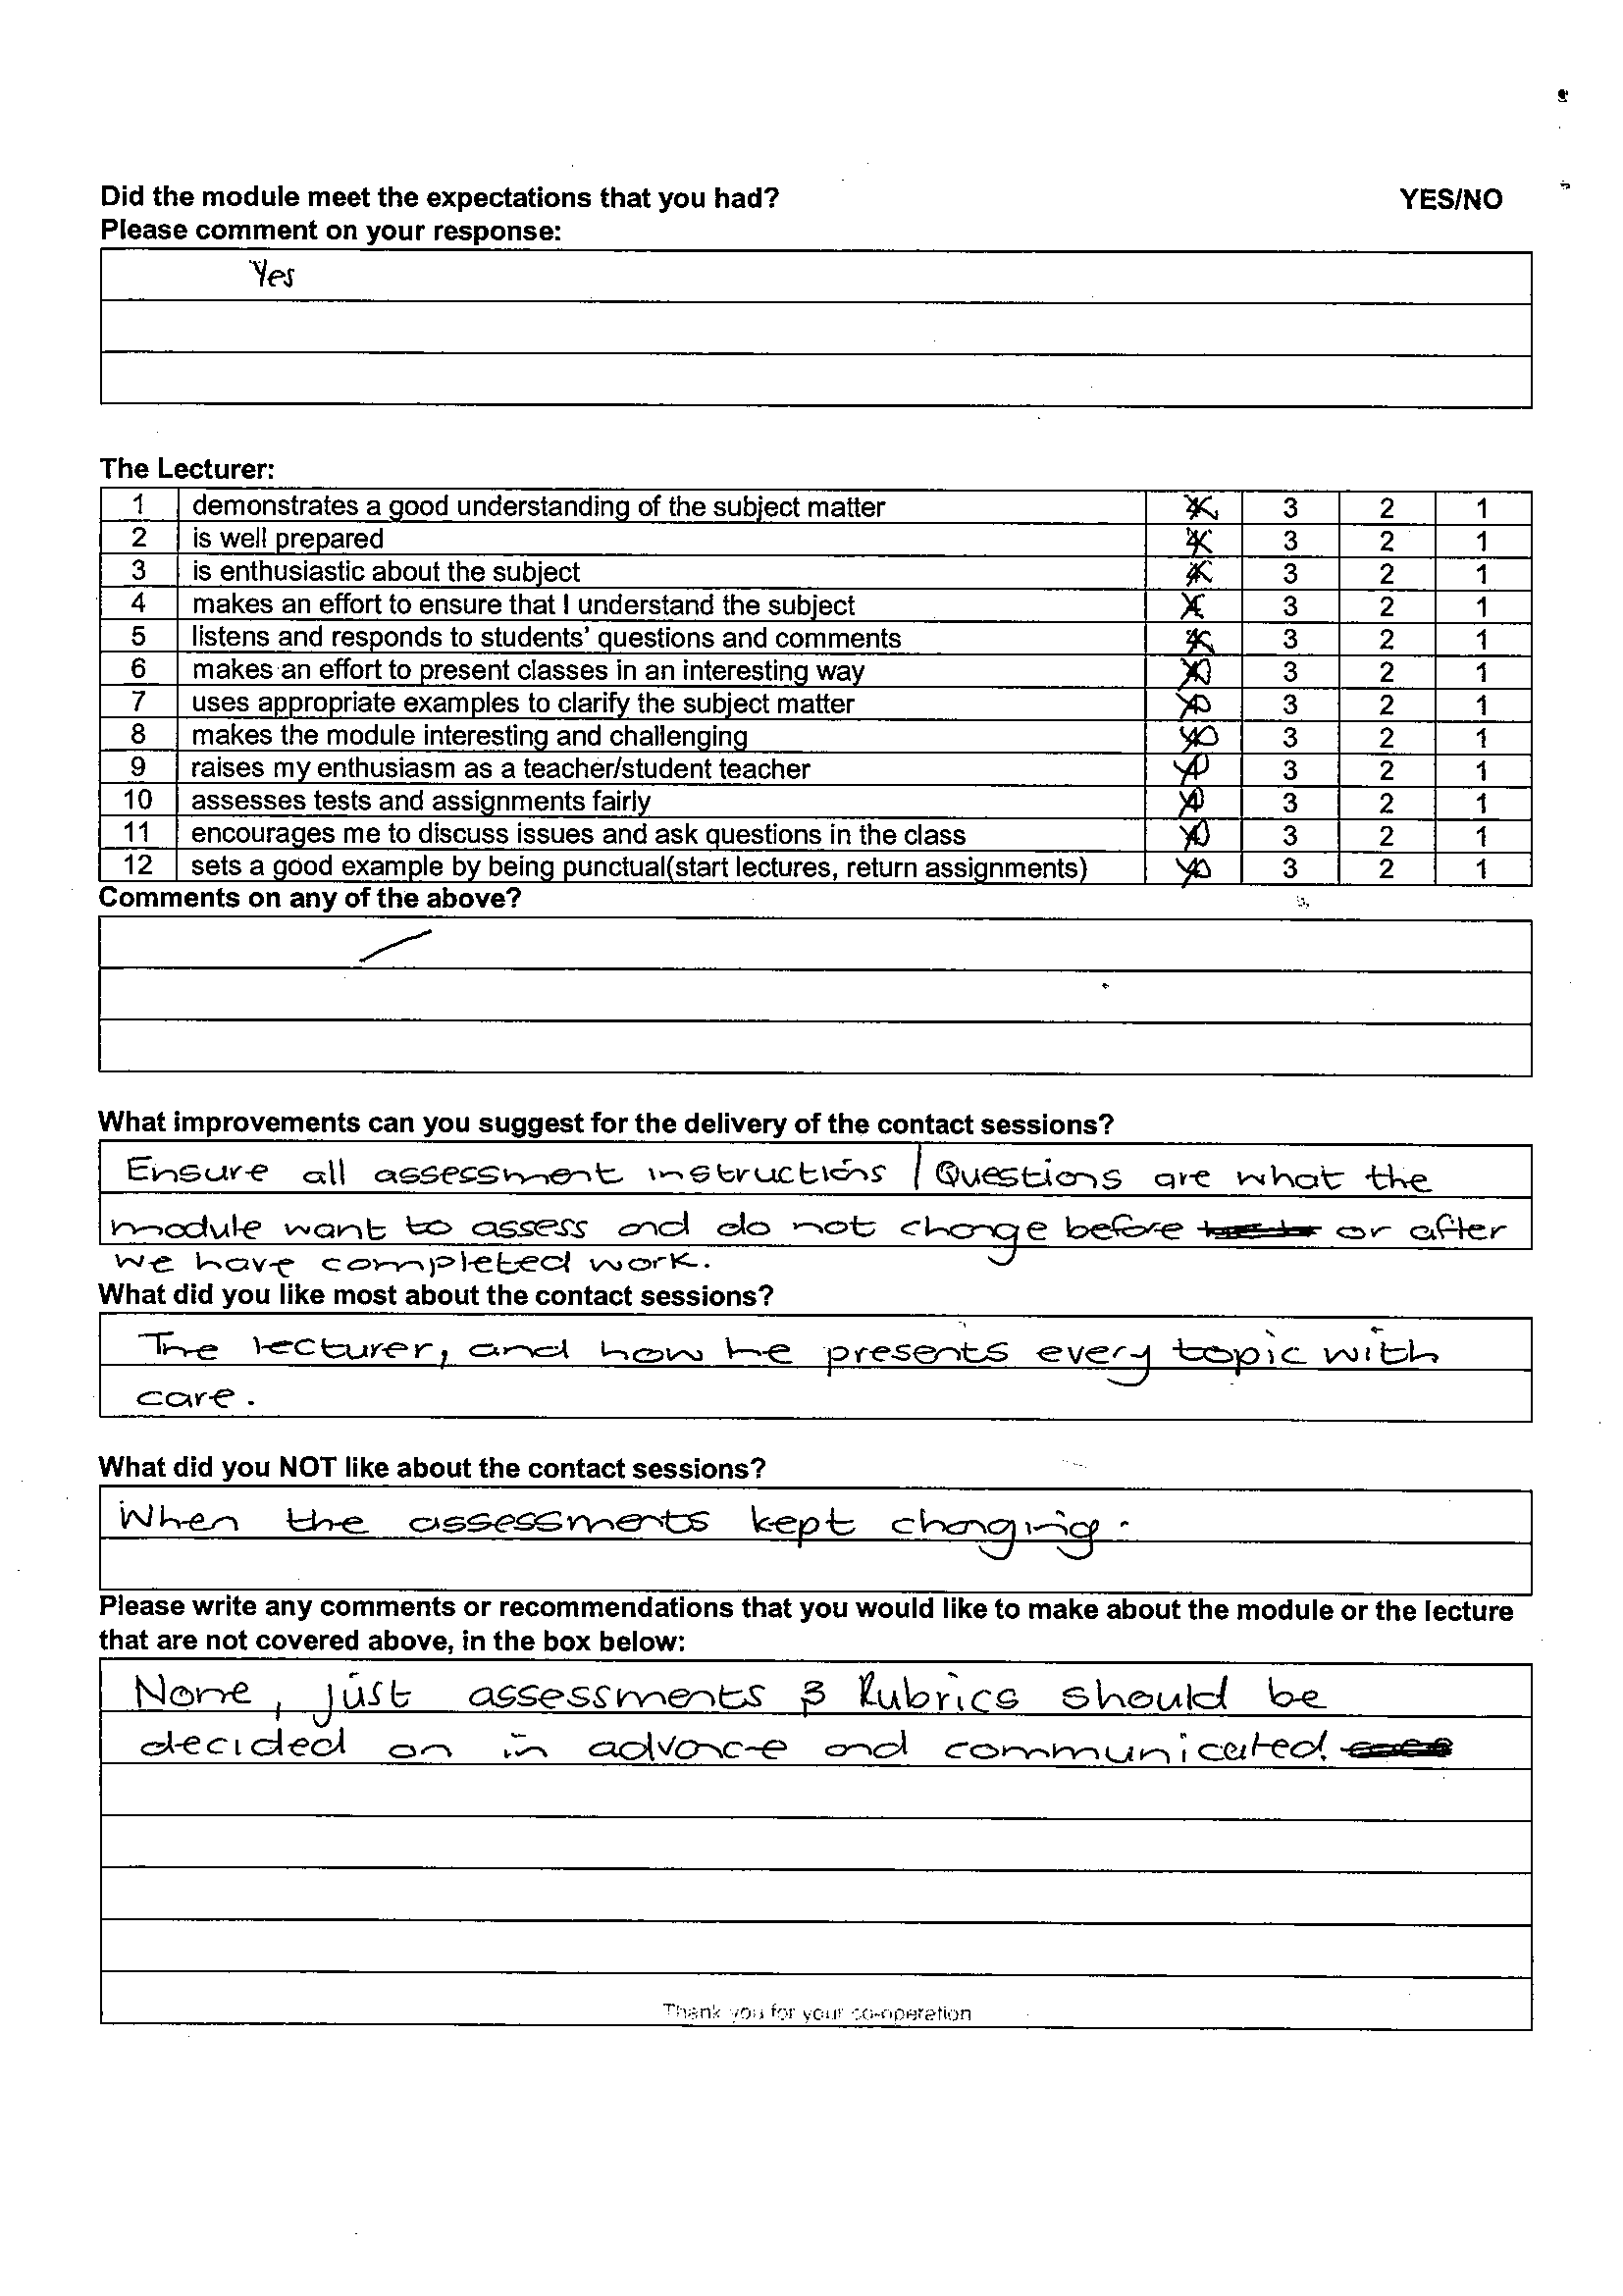 Did the module meet the expectations that you had? YES/NO
Please comment on your response:
Yes
The Lecturer:
1 demonstrates a good understanding of the subject matter 4 3 2 1
2 is well prepared 4 3 2 1
3 is enthusiastic about the subject 4 3 2 1
4 makes an effort to ensure that I understand the subject 4 3 2 1
5 listens and responds to students' questions and comments 4 3 2 1
6 makes an effort to present classes in an interesting way 4 3 2 1
7 uses appropriate examples to clarify the subject matter 4 3 2 1
8 makes the module interesting and challenging 4 3 2 1
9 raises my enthusiasm as a teacher/student teacher 4 3 2 1
10 assesses tests and assignments fairly 4 3 2 1
11 encourages me to discuss issues and ask questions in the class 4 3 2 1
12 sets a good example by being punctual(start lectures, return assignments) 4 3 2 1
Comments on any of the above?
What improvements can you suggest for the delivery of the contact sessions?
Ensure all assessment instructions / Questions are what the
module want to assess and do not change before or after
we have completed work.
What did you like most about the contact sessions?
The lecturer, and how he presents every topic with
care.
What did you NOT like about the contact sessions?
When the assessments kept changing.
Please write any comments or recommendations that you would like to make about the module or the lecture
that are not covered above, in the box below:
None, just assessments & Rubrics should be
decided on in advance and communicated.
Thank you for your co-operation